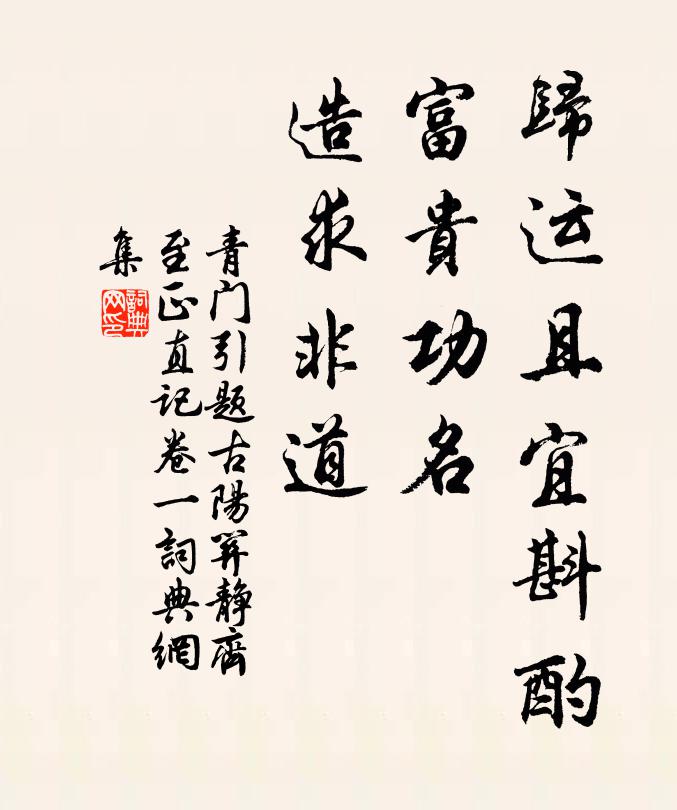 歸运且宜斟酌
富貴功名
造求非道
青门引题古陽關静齋
至正直记卷一詞典網
集
詞典网印